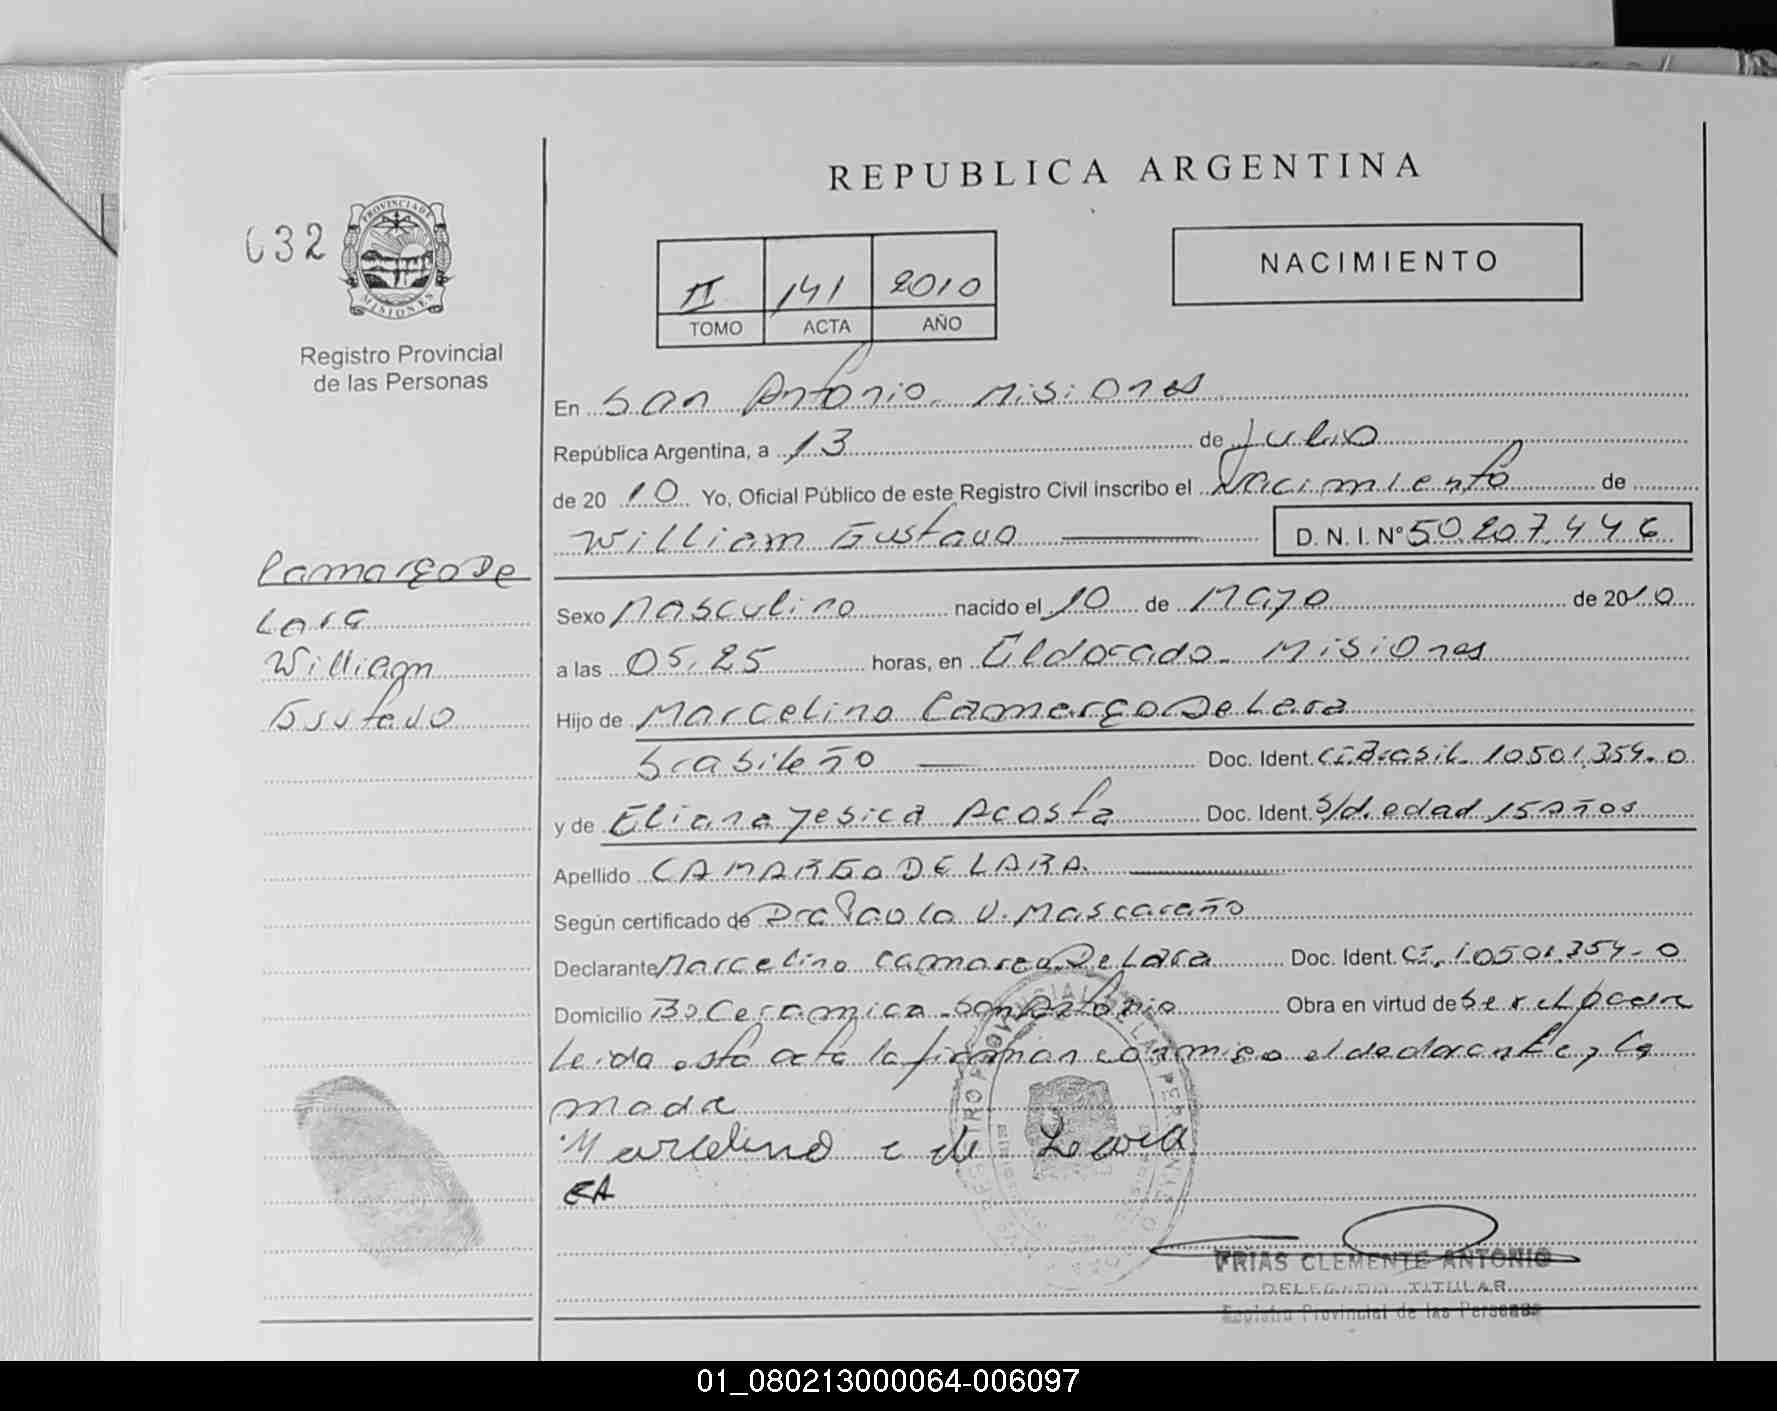 REPUBLICA ARGENTINA
632
PROVINCIA DE
MISIONES
Registro Provincial
de las Personas
II 141 2010
TOMO ACTA AÑO
NACIMIENTO
En San Antonio - Misiones
República Argentina, a 13 de Julio
de 20 10 Yo, Oficial Público de este Registro Civil inscribo el Nacimiento de
William Gustavo D.N.I. Nº 50.207.446
Camargo De
Lara
William
Gsutavo
Sexo Masculino nacido el 10 de Mayo de 2010
a las 05,25 horas, en Eldorado - Misiones
Hijo de Marcelino Camargo De Lara
brasileño Doc. Ident. CI.Brasil. 10501.354-0
y de Eliana Yesica Acosta Doc. Ident. S/d. edad 15 años
Apellido CAMARGO DE LARA.
Según certificado de Dra Paola V. Mascaraño
Declarante Marcelino Camargo De Lara Doc. Ident. CI. 10501.354-0
Domicilio Bº Ceramica - San Antonio Obra en virtud de Ser el padre
Leida esta acta la firman conmigo el declarante y la
madre
Marcelino c de Lara
EA
FRIAS CLEMENTE ANTONIO
DELEGADO TITULAR
Registro Provincial de las Personas
01_080213000064-006097